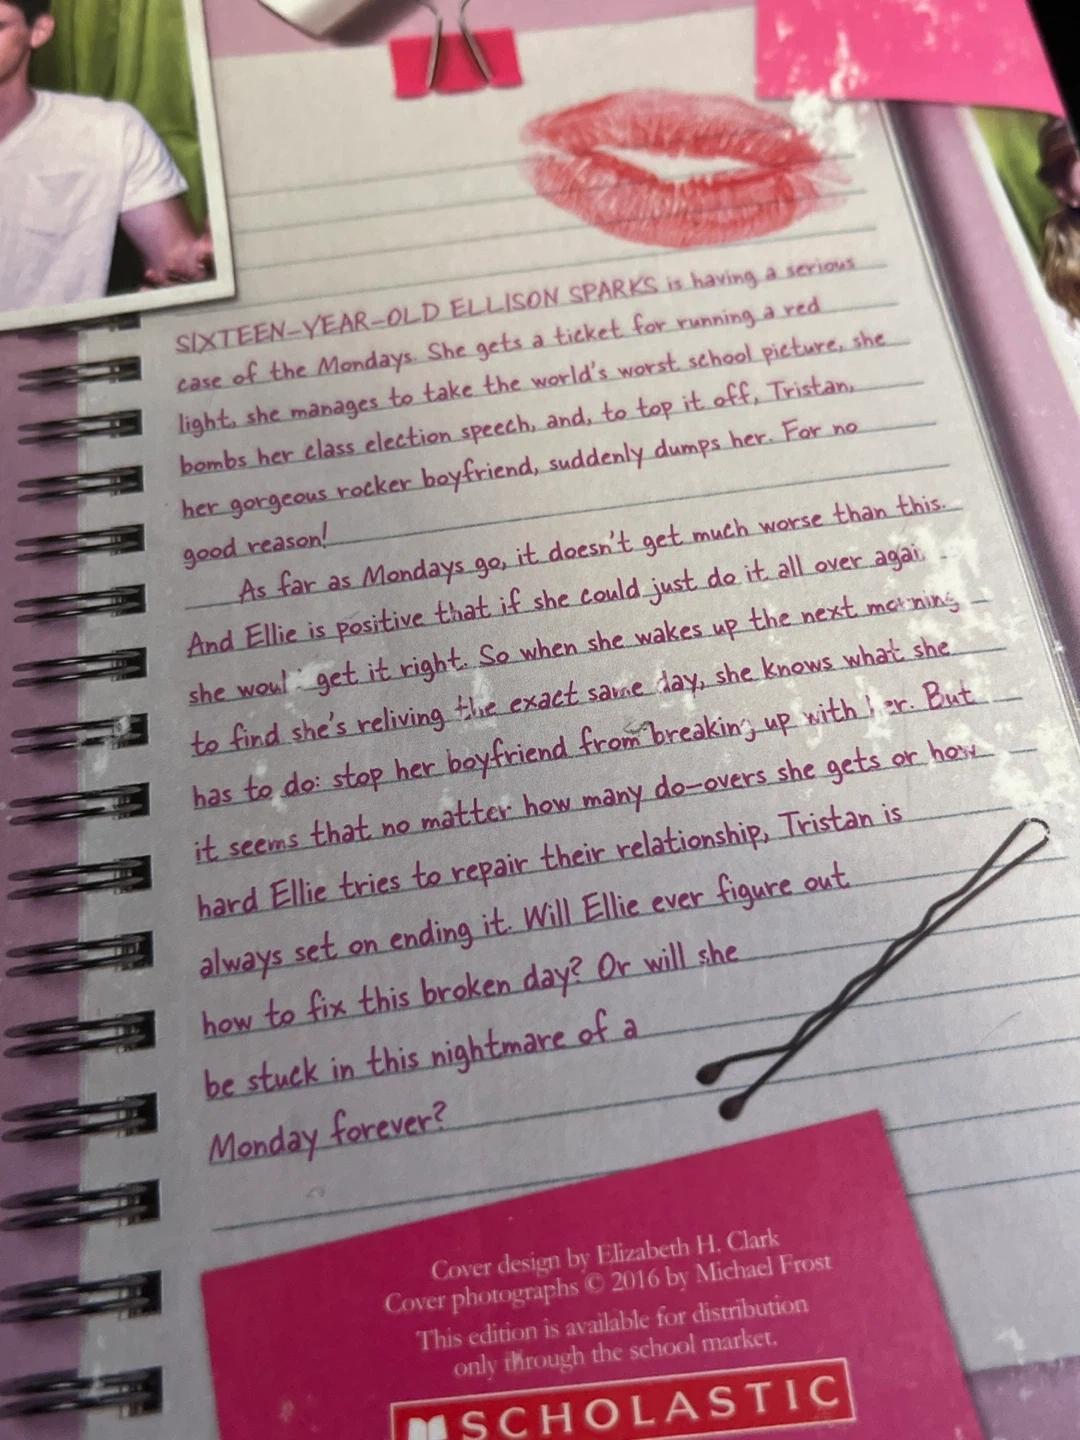 SIXTEEN-YEAR-OLD ELLISON SPARKS is having a serious
case of the Mondays. She gets a ticket for running a red
light, she manages to take the world's worst school picture, she
bombs her class election speech, and, to top it off, Tristan,
her gorgeous rocker boyfriend, suddenly dumps her. For no
good reason!
As far as Mondays go, it doesn't get much worse than this.
And Ellie is positive that if she could just do it all over again
she would get it right. So when she wakes up the next morning
to find she's reliving the exact same day, she knows what she
has to do: stop her boyfriend from breaking up with her. But
it seems that no matter how many do-overs she gets or how
hard Ellie tries to repair their relationship, Tristan is
always set on ending it. Will Ellie ever figure out
how to fix this broken day? Or will she
be stuck in this nightmare of a
Monday forever?
Cover design by Elizabeth H. Clark
Cover photographs © 2016 by Michael Frost
This edition is available for distribution
only through the school market.
SCHOLASTIC